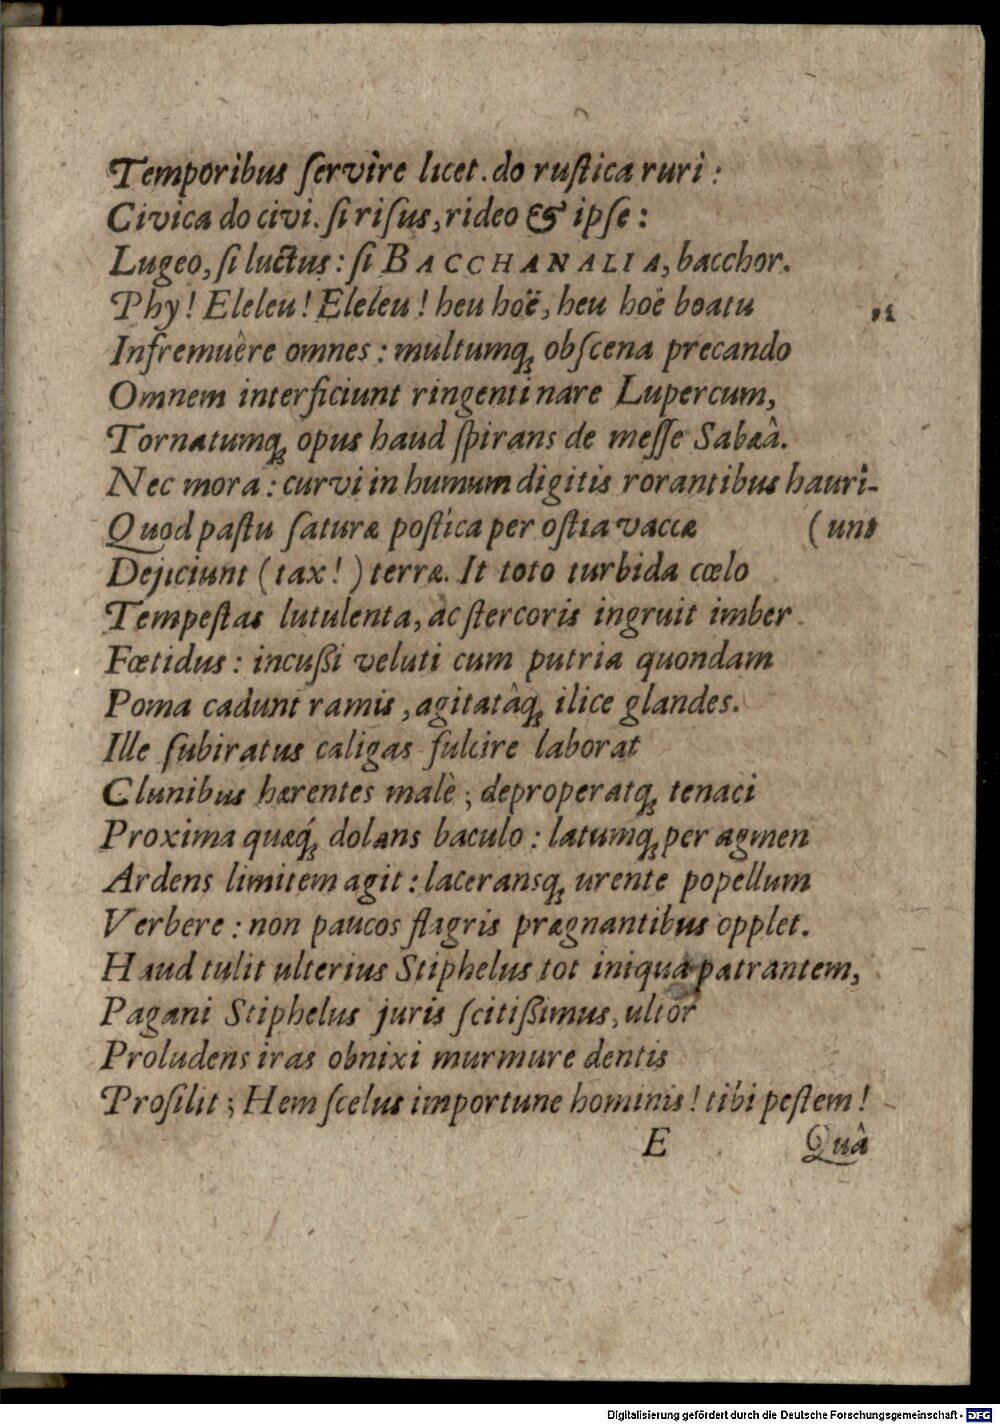 Temporibus ſervìre licet. do ruſtica ruri:
Civica do civi. ſi riſus, rideo & ipſe:
Lugeo, ſi luctus: ſi BACCHANALIA, bacchor.
Phy! Eleleu! Eleleu! heu hoë, heu hoë boatu
Infremuêre omnes: multumq́; obſcena precando
Omnem interficiunt ringenti nare Lupercum,
Tornatumq́; opus haud ſpirans de meſſe Sabæâ.
Nec mora: curvi in humum digitis rorantibus hauri-
Quod paſtu ſaturæ poſtica per oſtia vaccæ (unt
Dejiciunt (tax!) terræ. It toto turbida cœlo
Tempeſtas lutulenta, ac ſtercoris ingruit imber
Fœtidus: incußi veluti cum putria quondam
Poma cadunt ramis, agitatâq; ilice glandes.
Ille ſubiratus caligas fulcire laborat
Clunibus hærentes malè; deproperatq; tenaci
Proxima quæq́; dolans baculo: latumq; per agmen
Ardens limitem agit: laceransq; urente popellum
Verbere: non paucos flagris prægnantibus opplet.
Haud tulit ulterius Stiphelus tot iniqua patrantem,
Pagani Stiphelus juris ſcitißimus, ultor
Proludens iras obnixi murmure dentis
Proſilit; Hem ſcelus importune hominis! tibi peſtem!
E Quâ
Digitalisierung gefördert durch die Deutsche Forschungsgemeinschaft - DFG